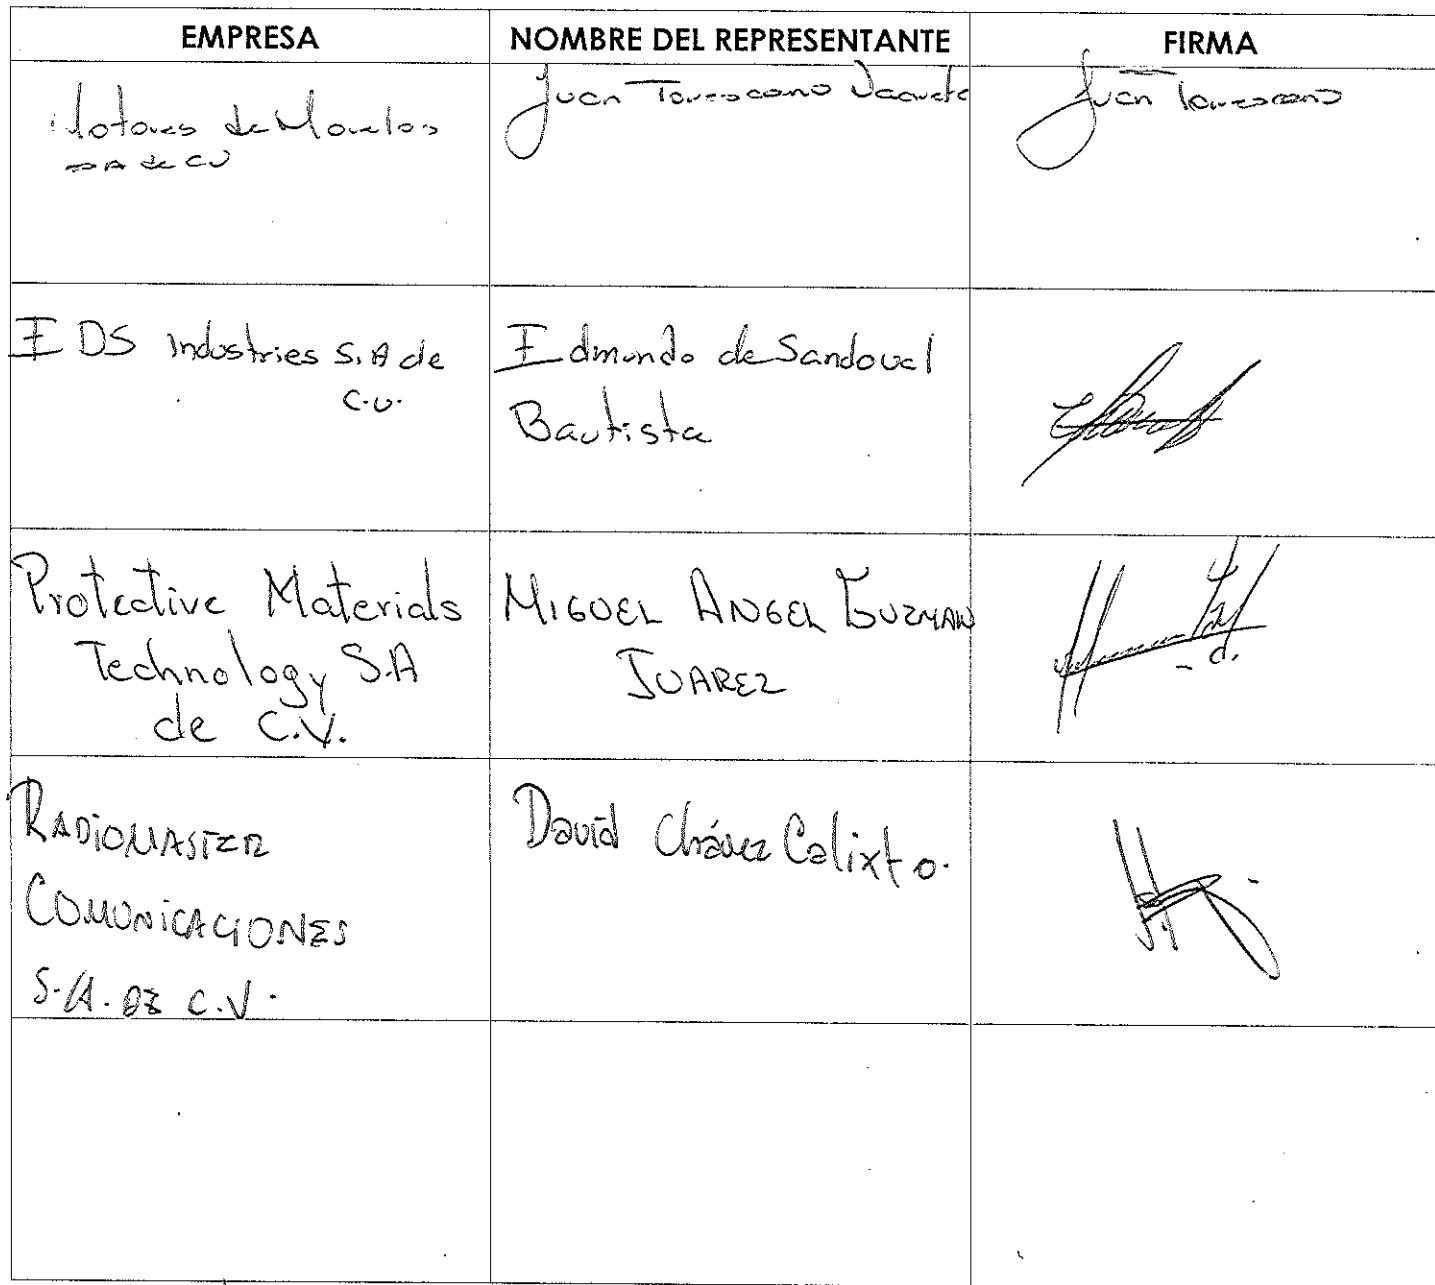 EMPRESA
NOMBRE DEL REPRESENTANTE
FIRMA
Motores de Morelos
SA de CV
Juan Torrescano
Juan Torrescano
EDS Industries S.A de
C.V.
Edmundo de Sandoval
Bautista
Protective Materials
Technology S.A
de C.V.
MIGUEL ANGEL GUZMAN
JUAREZ
RADIOMASTER
COMUNICACIONES
S.A. DE C.V.
David Chávez Calixto.